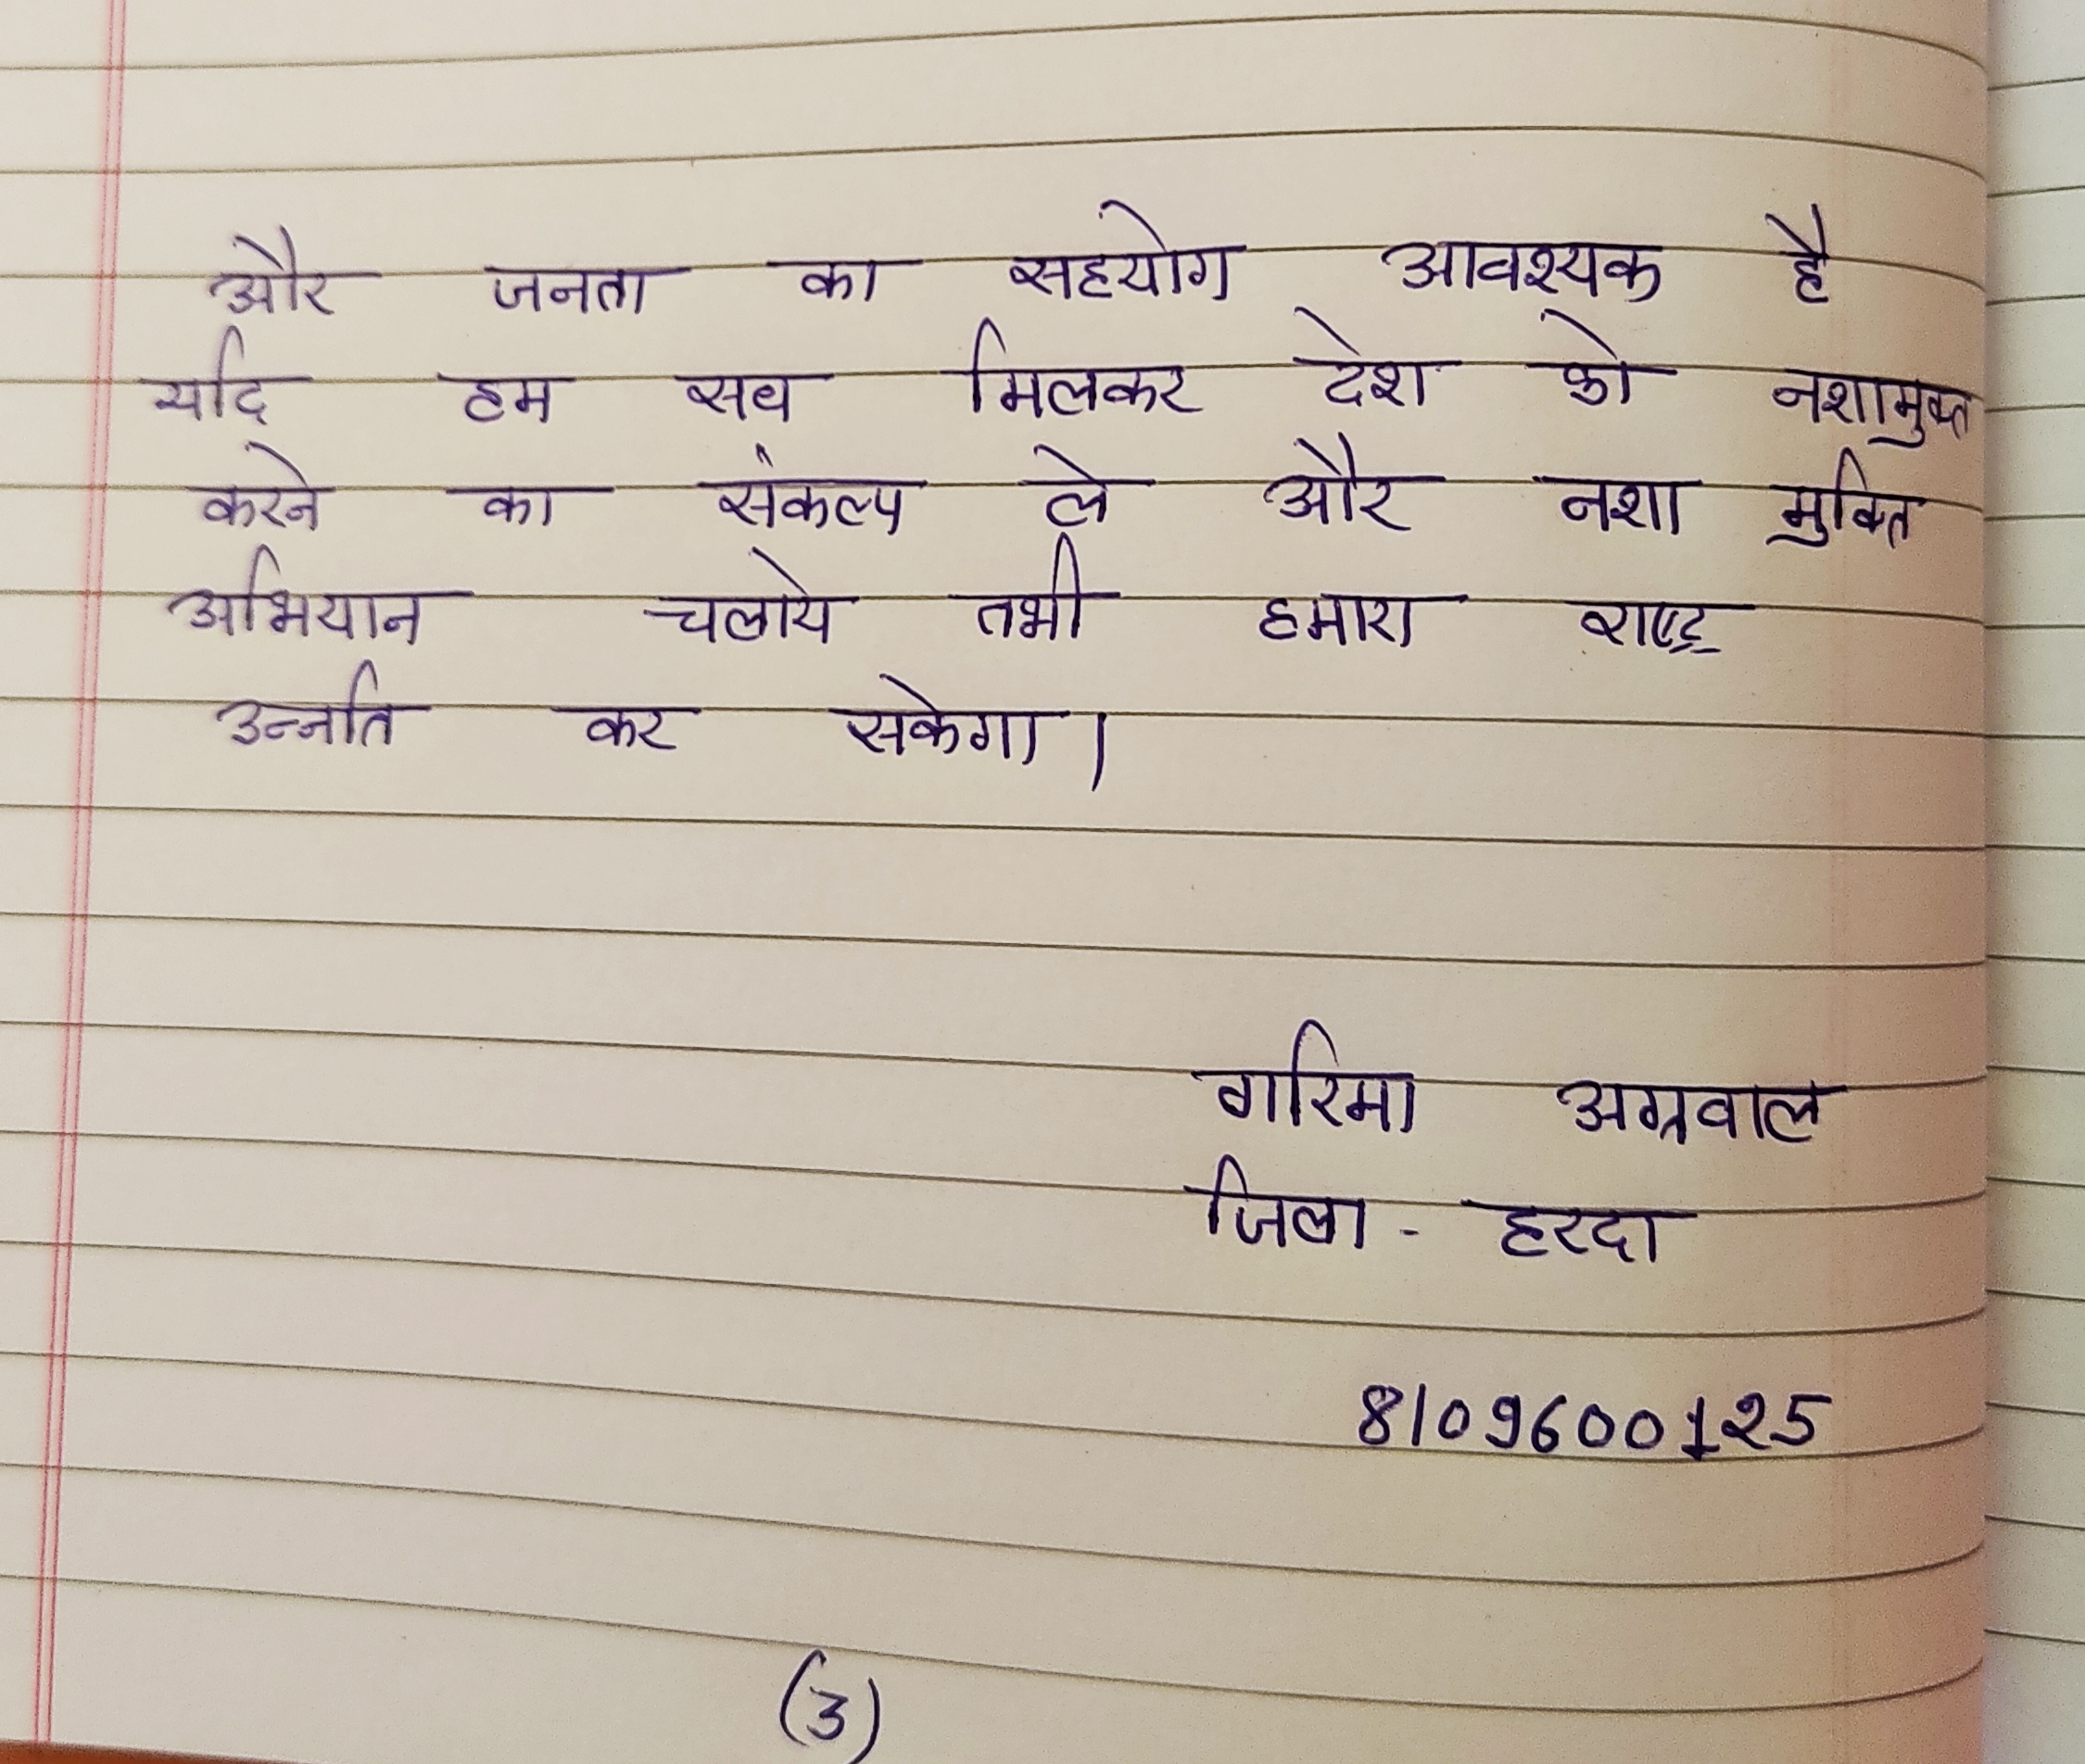 और जनता का सहयोग आवश्यक है
यदि हम सब मिलकर देश को नशामुक्त
करने का संकल्प ले और नशा मुक्ति
अभियान चलाये तभी हमारा राष्ट्र
उन्नति कर सकेगा।
गरिमा अग्रवाल
जिला - हरदा
8109600125
(3)